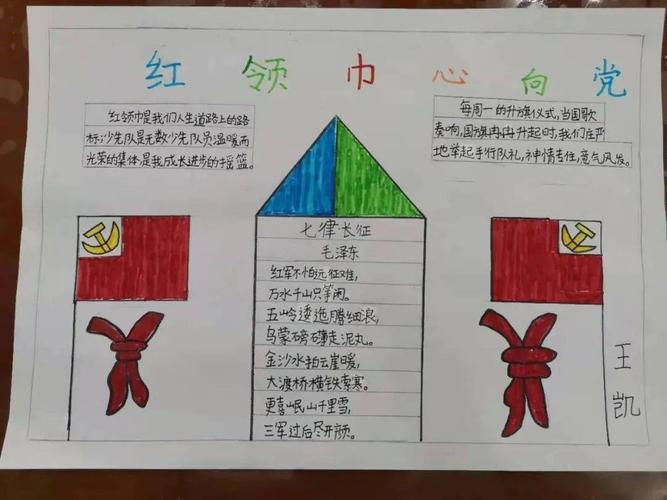 红领巾心向党
红领巾是我们人生道路上的路
标,少先队是无数少先队员温暖而
光荣的集体,是我成长进步的摇篮。
每周一的升旗仪式,当国歌
奏响,国旗冉冉升起时,我们庄严
地举起手行队礼,神情专注,意气风发。
七律·长征
毛泽东
红军不怕远征难,
万水千山只等闲。
五岭逶迤腾细浪,
乌蒙磅礴走泥丸。
金沙水拍云崖暖,
大渡桥横铁索寒。
更喜岷山千里雪,
三军过后尽开颜。
王凯